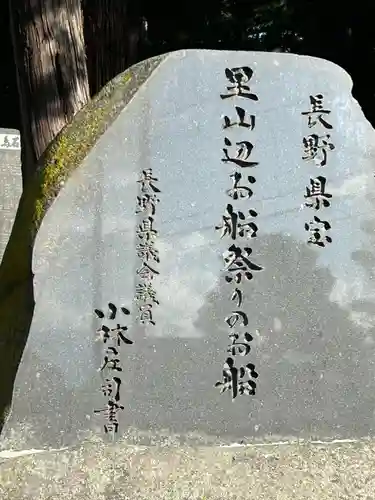 長野県宝
里山辺お船祭りのお船
長野県議会議員
小林庄司書